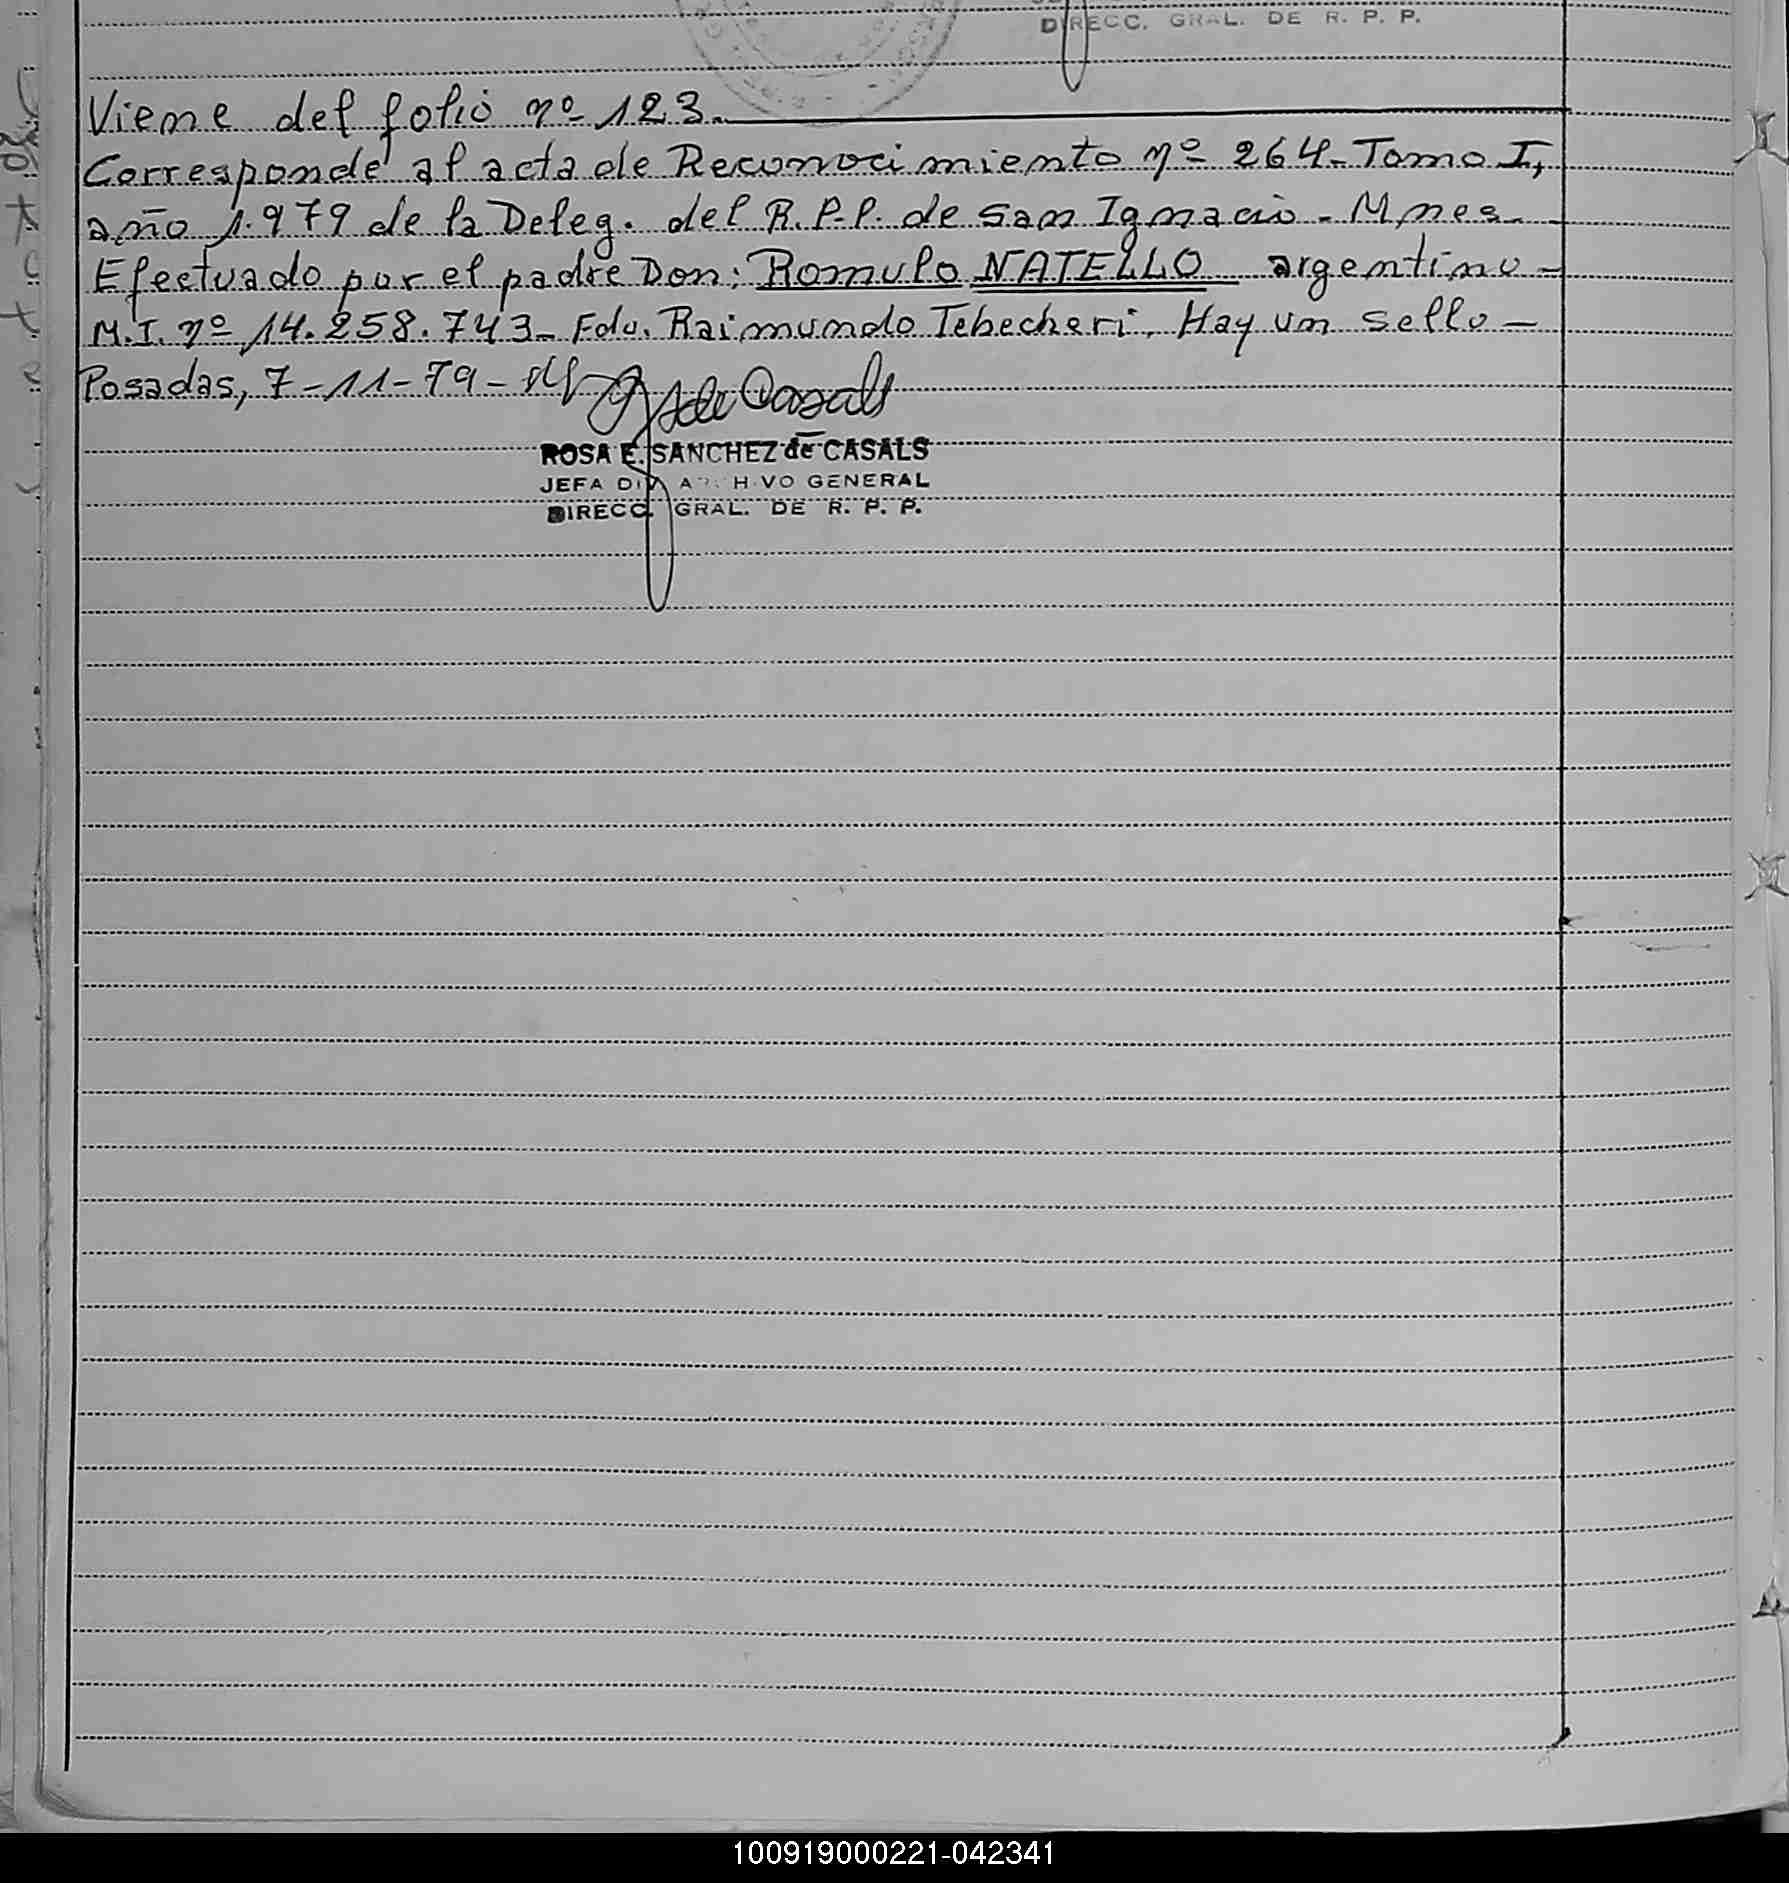 DIRECC. GRAL. DE R. P. P.
Viene del folio nº 123.
Corresponde al acta de Reconocimiento nº 264. Tomo I,
año 1.979 de la Deleg. del R.P.P. de San Ignacio - Mnes.
Efectuado por el padre Don: Romulo NATELLO argentino -
M.I. nº 14.258.743 - Fdo. Raimundo Tebecheri. Hay un sello -
Posadas, 7-11-79 -
de Casals
ROSA E. SANCHEZ de CASALS
JEFA DIV. ARCHIVO GENERAL
DIRECC. GRAL. DE R. P. P.
100919000221-042341